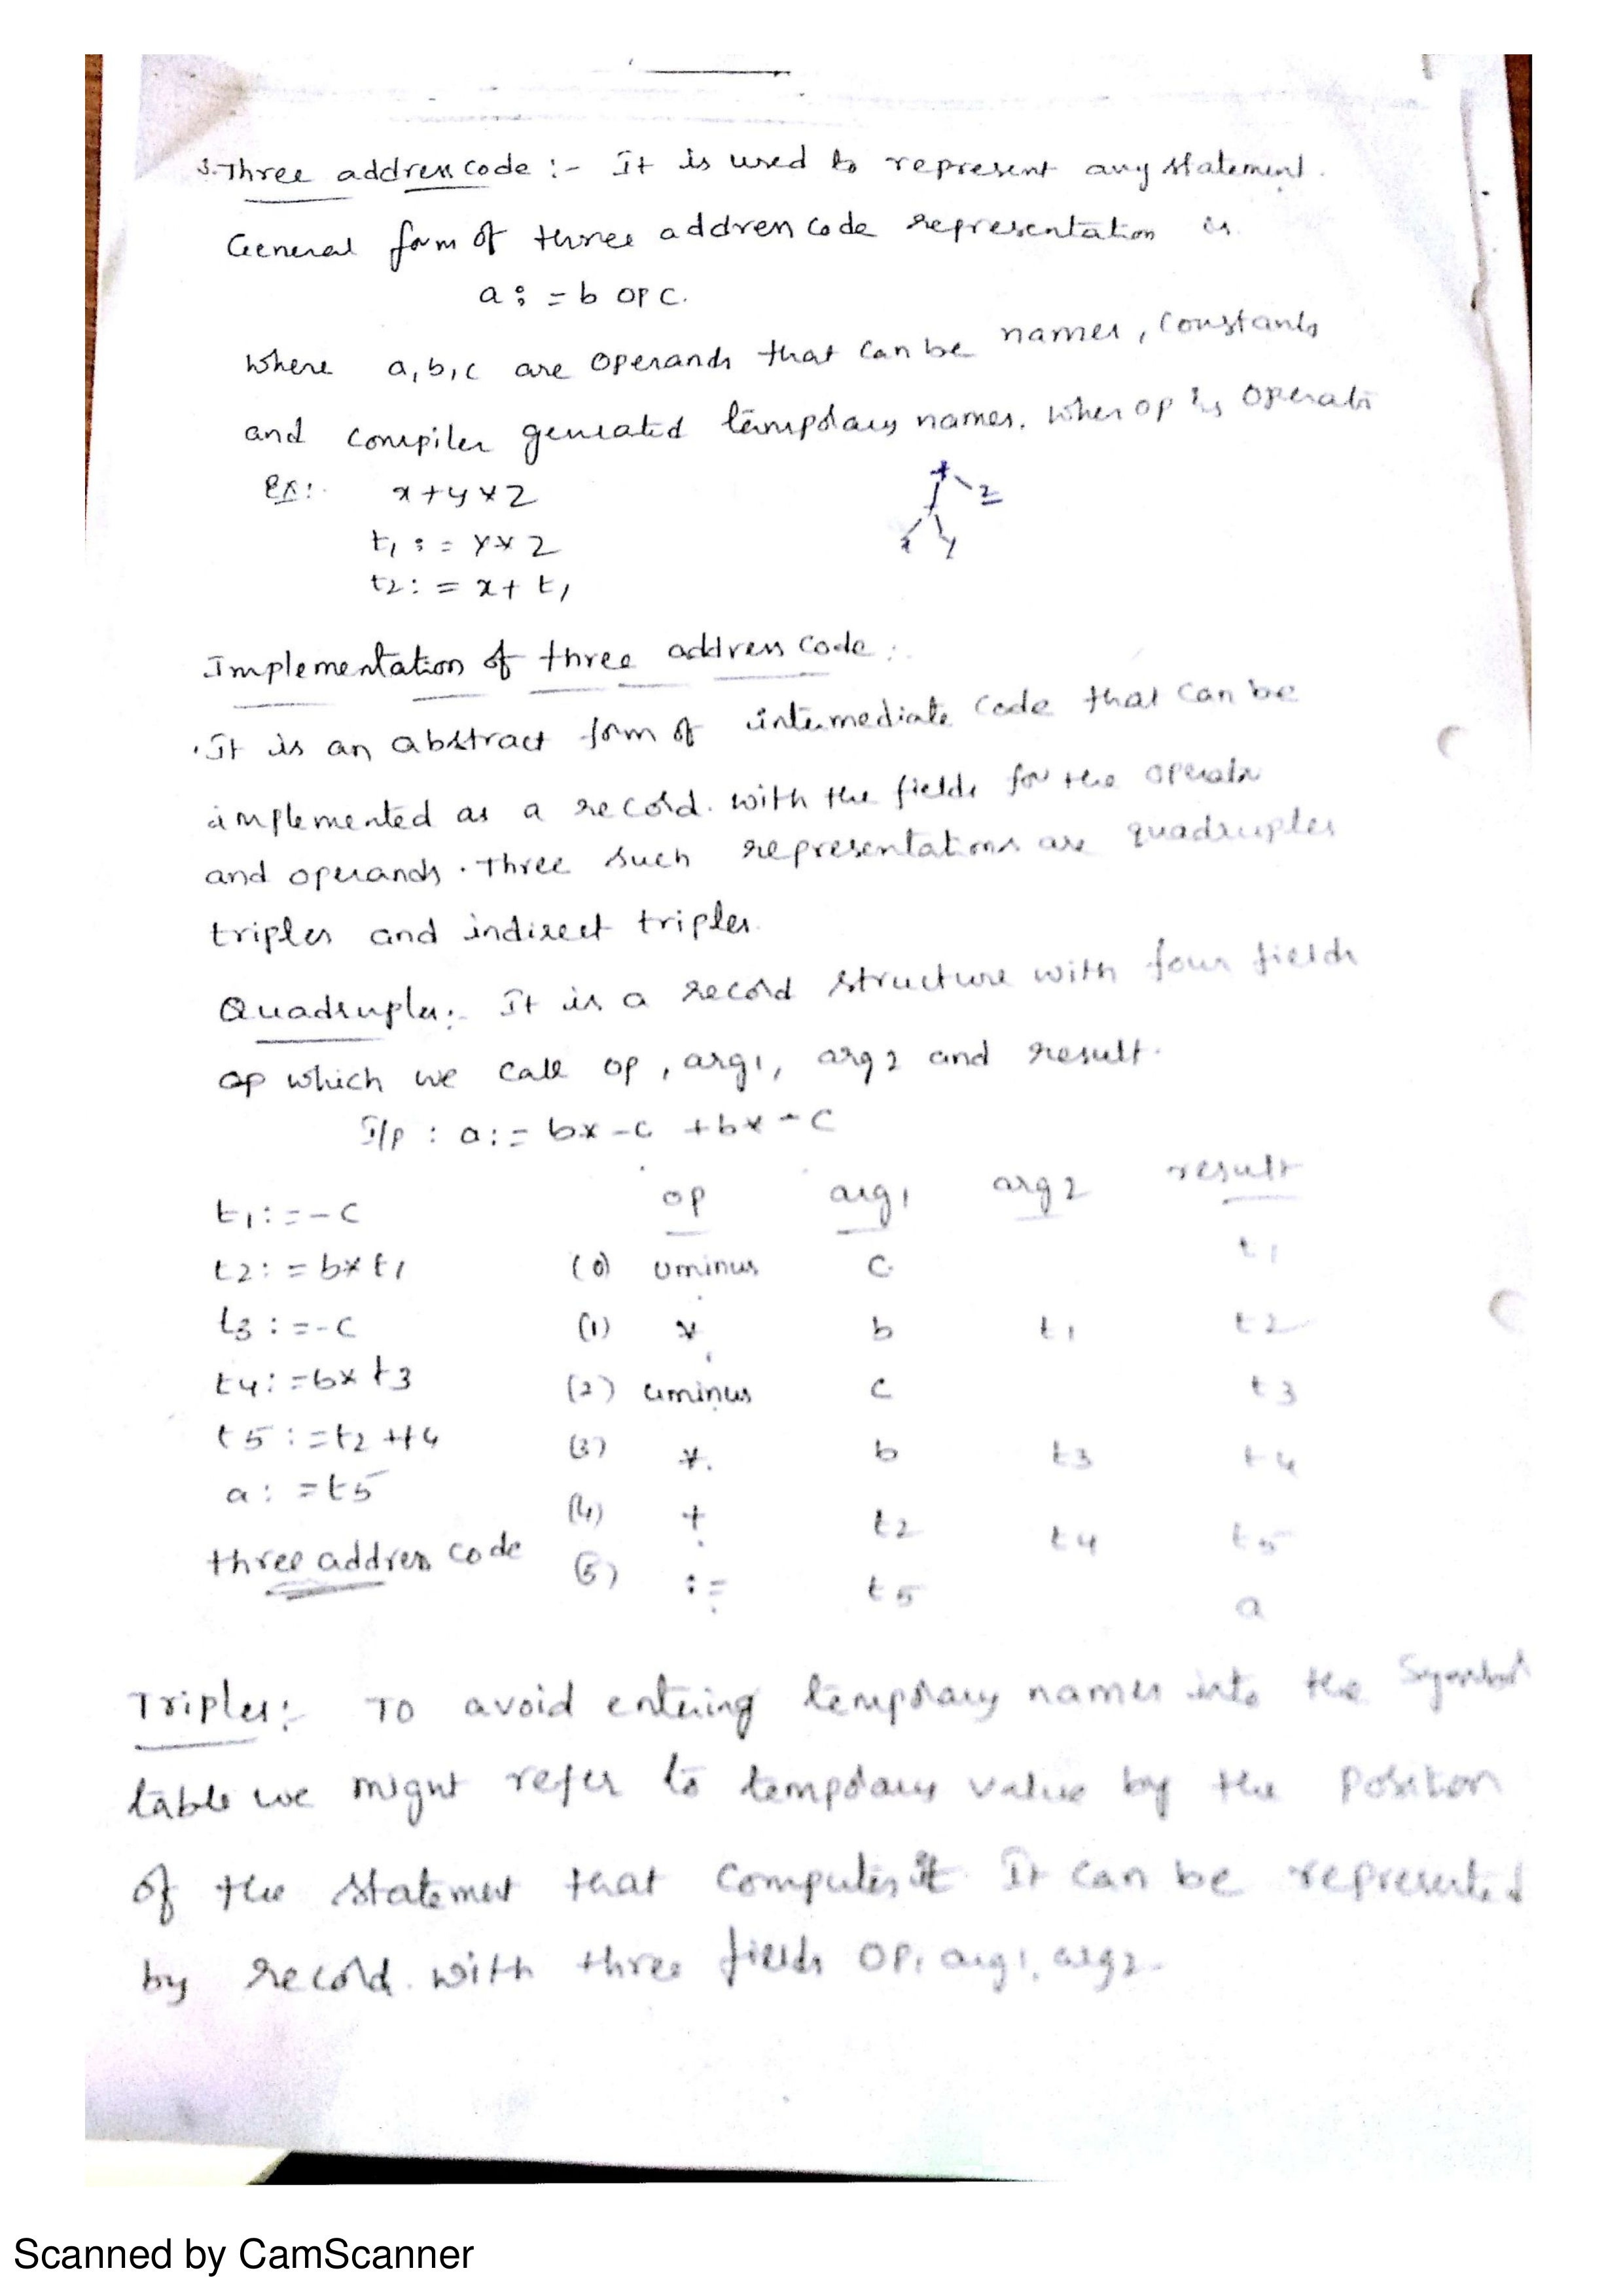 3. Three address code :- It is used to represent any statement.
General form of three address code representation is
a := b op c.
where a, b, c are operands that can be names, constants
and compiler generated temporary names. when op is operator
Ex:- x + y * z
t1 := y * z
t2 := x + t1
+ z
x y
Implementation of three address code :-
. It is an abstract form of intermediate code that can be
implemented as a record. with the fields for the operator
and operands. Three such representations are quadruples
triples and indirect triples.
Quadruples:- It is a record structure with four fields
op which we call op, arg1, arg2 and result.
I/p : a := b * - c + b * - c
op arg1 arg2 result
t1 := - c
t2 := b * t1 (0) uminus c t1
t3 := - c (1) * b t1 t2
t4 := b * t3 (2) uminus c t3
t5 := t2 + t4 (3) * b t3 t4
a := t5 (4) + t2 t4 t5
three address code (5) := t5 a
Triples:- To avoid entering temporary names into the Symbol
table we might refer to temporary value by the Position
of the statement that computes it It can be represented
by record. with three fields op, arg1, arg2.
Scanned by CamScanner